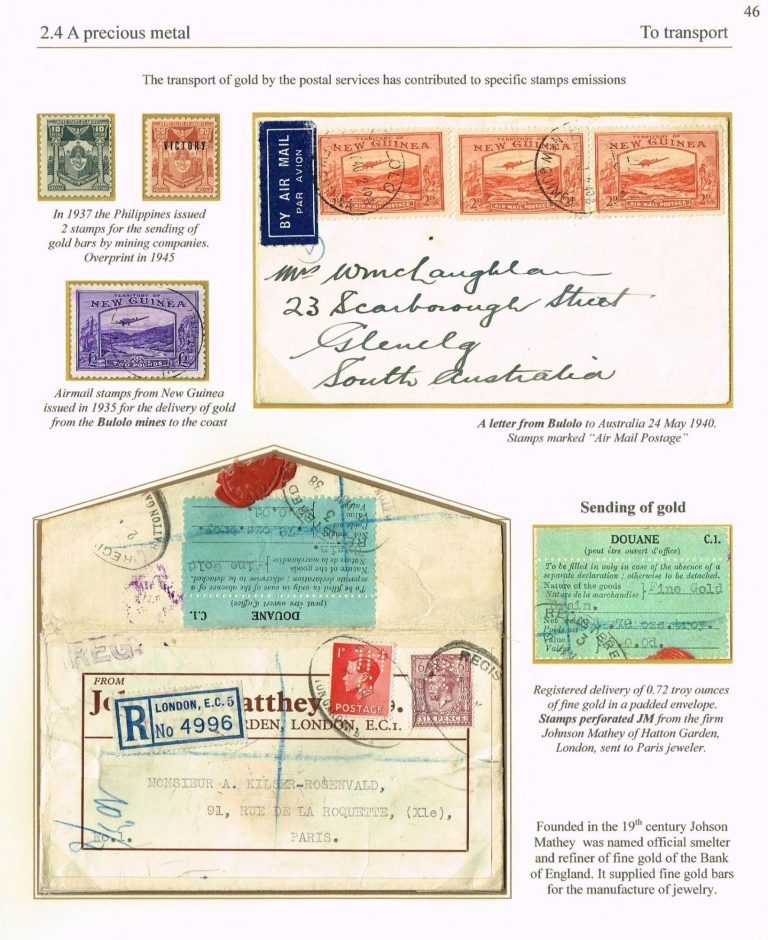 46
2.4 A precious metal To transport
The transport of gold by the postal services has contributed to specific stamps emissions
10 10
20 20
VICTORY
In 1937 the Philippines issued
2 stamps for the sending of
gold bars by mining companies.
Overprint in 1945
BY AIR MAIL
PAR AVION
TERRITORY OF
NEW GUINEA
2D
AIR MAIL POSTAGE
TERRITORY OF
NEW GUINEA
2D 2D
AIR MAIL POSTAGE
TERRITORY OF
NEW GUINEA
2D 2D
AIR MAIL POSTAGE
Mrs W McLaughlan
23 Scarborough Street
Glenelg
South Australia
TERRITORY OF
NEW GUINEA
£2 £2
Airmail stamps from New Guinea
issued in 1935 for the delivery of gold
from the Bulolo mines to the coast
A letter from Bulolo to Australia 24 May 1940.
Stamps marked "Air Mail Postage"
DOUANE
C.1.
(peut être ouvert d'office)
To be filled in only in case of the absence of a
separate declaration ; otherwise to be detached.
Nature of the goods
Nature de la marchandise
Fine Gold
REG.
FROM
LONDON, E.C.5
R No 4996
RDEN, LONDON, E.C.1.
1D
POSTAGE
SIX PENCE
REGIS
MONSIEUR A. KILSER-ROSENVALD,
91, RUE DE LA ROQUETTE, (XIe),
PARIS.
No.1.
Sending of gold
DOUANE C.1.
(peut être ouvert d'office)
To be filled in only in case of the absence of a
separate declaration ; otherwise to be detached.
Nature of the goods
Nature de la marchandise
Fine Gold
Grain.
ozs.troy.
Value
Registered delivery of 0.72 troy ounces
of fine gold in a padded envelope.
Stamps perforated JM from the firm
Johnson Mathey of Hatton Garden,
London, sent to Paris jeweler.
Founded in the 19th century Johson
Mathey was named official smelter
and refiner of fine gold of the Bank
of England. It supplied fine gold bars
for the manufacture of jewelry.